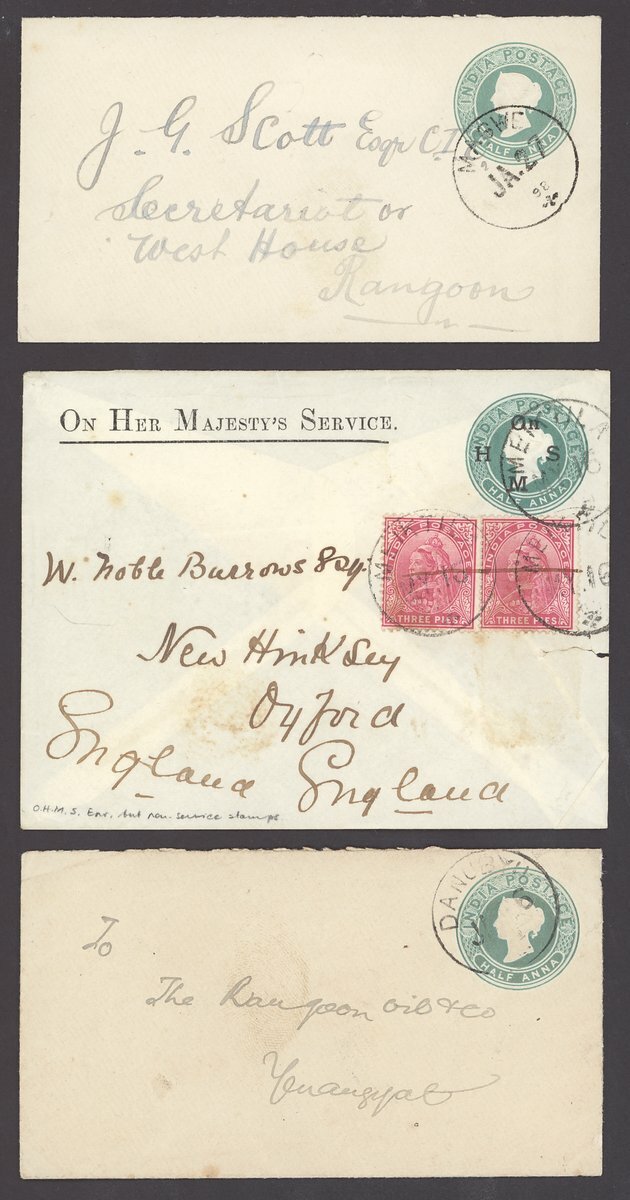 INDIA POSTAGE
HALF ANNA
MAGWE
JA.27
J. G. Scott Esqr C.I
Secretariat or
West House
Rangoon
ON HER MAJESTY'S SERVICE.
INDIA POSTAGE
On
H S
M
HALF ANNA
THREE PIES
THREE PIES
W. Noble Burrows Esq.
New Hinksey
Oxford
England England
O.H.M.S. Env. but non-service stamps
DANUBYU
INDIA POSTAGE
HALF ANNA
To
The Rangoon Oil & Co
Yenangyat